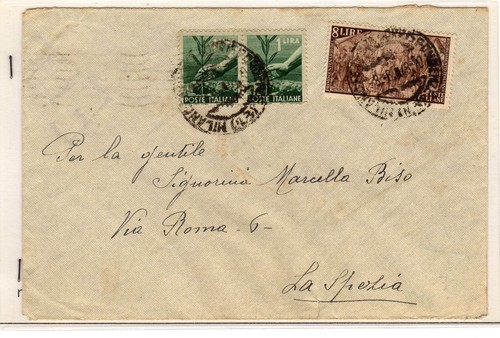 1 LIRA
POSTE ITALIANE POSTE ITALIANE
8 LIRE
MILANO
Per la gentile
Signorina Marcella Biso
Via Roma 6-
La Spezia